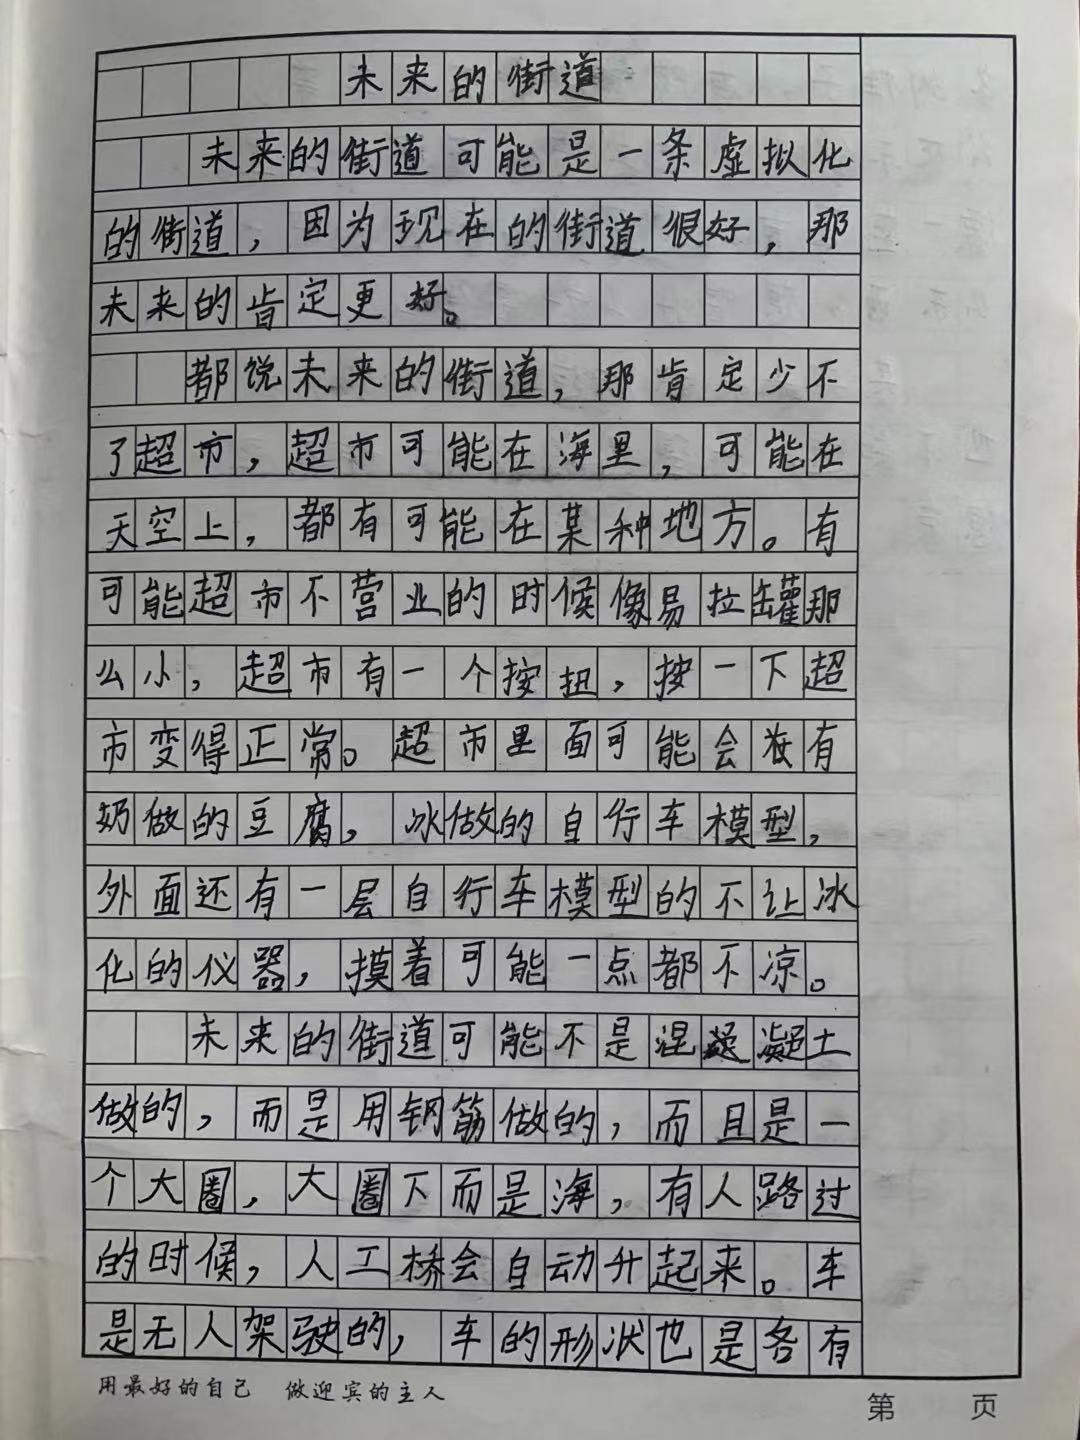 未来的街道
未来的街道可能是一条虚拟化
的街道，因为现在的街道很好，那
未来的肯定更好。
都说未来的街道，那肯定少不
了超市，超市可能在海里，可能在
天空上，都有可能在某种地方。有
可能超市不营业的时候像易拉罐那
么小，超市有一个按扭，按一下超
市变得正常。超市里面可能会有
奶做的豆腐，冰做的自行车模型，
外面还有一层自行车模型的不让冰
化的仪器，摸着可能一点都不凉。
未来的街道可能不是混凝土
做的，而是用钢筋做的，而且是一
个大圈，大圈下而是海，有人路过
的时候，人工桥会自动升起来。车
是无人架驶的，车的形状也是各有
用最好的自己 做迎宾的主人
第 页